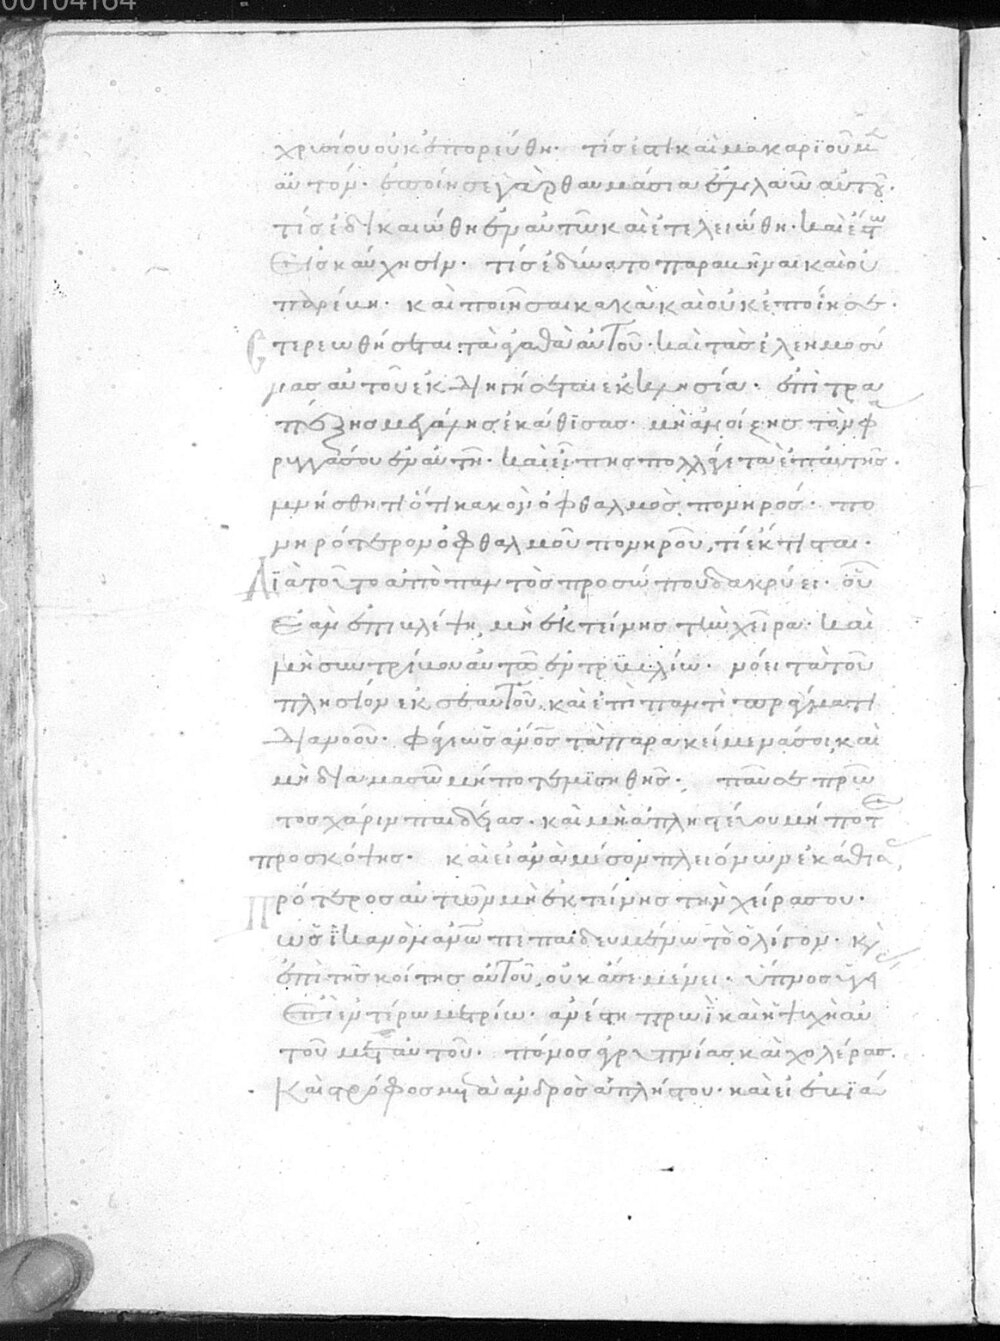 00104164
χρυσίου οὐκ ἐπορεύθη· τίς ἐστι καὶ μακαριοῦμεν
αὐτόν· ἐποίησε γὰρ θαυμάσια ἐν λαῶ αὐτοῦ·
τίς ἐδικαιώθη ἐν αὐτῶ καὶ ἐτελειώθη· καὶ ἔστω
εἰς καύχησιν· τίς ἐδύνατο παραβῆναι καὶ οὐ
παρέβη· καὶ ποιῆσαι κακὰ καὶ οὐκ ἐποίησε·
στερεωθήσεται τὰ ἀγαθὰ αὐτοῦ· καὶ τὰς ἐλεημοσύ
νας αὐτοῦ ἐκδιηγήσεται ἐκκλησία· ἐπὶ τρα
πέζης μεγάλης ἐκάθισας· μὴ ἀνοίξης τὸν φά
ρυγγά σου ἐν αὐτῆ· καὶ εἴπης πολλά γε τὰ ἐπ αὐτῆς·
μνήσθητι ὅτι κακὸν ὀφθαλμὸς πονηρός· πο
νηρότερον ὀφθαλμοῦ πονηροῦ, τί ἔκτισται·
Διὰ τοῦτο ἀπὸ παντὸς προσώπου δακρύει· οὗ
ἐὰν ἐπιβλέψη, μὴ ἐκτείνης τὴν χεῖρα· καὶ
μὴ συντρίβου αὐτῶ ἐν τρυβλίω· νόει τὰ τοῦ
πλησίον ἐκ σεαυτοῦ, καὶ ἐπὶ παντὶ πράγματι
διανοοῦ· φάγε ὡς ἄνος τὰ παρακείμενά σοι, καὶ
μὴ διαμασῶ μήποτε μισηθῆς· παῦσε πρῶ
τος χάριν παιδείας· καὶ μὴ ἀπληστεύου μήποτε
προσκόψης· καὶ εἰ ἀνὰ μέσον πλειόνων ἐκάθισας,
Πρότερος αὐτῶν μὴ ἐκτείνης τὴν χεῖρα σου·
ὡς ἱκανὸν ἀνω πεπαιδευμένω τὸ ὀλίγον· καὶ
ἐπὶ τῆς κοίτης αὐτοῦ, οὐκ ἀσθμαίνει· ὕπνος ὑγείας
ἐπὶ ἐντέρω μετρίω· ἀνέστη πρωῒ καὶ ἡ ψυχὴ αὐ
τοῦ μετ αὐτοῦ· πόνος ἀγρυπνίας καὶ χολέρας·
Καὶ στρόφος μετὰ ἀνδρὸς ἀπλήστου· καὶ εἰ ἐβιά